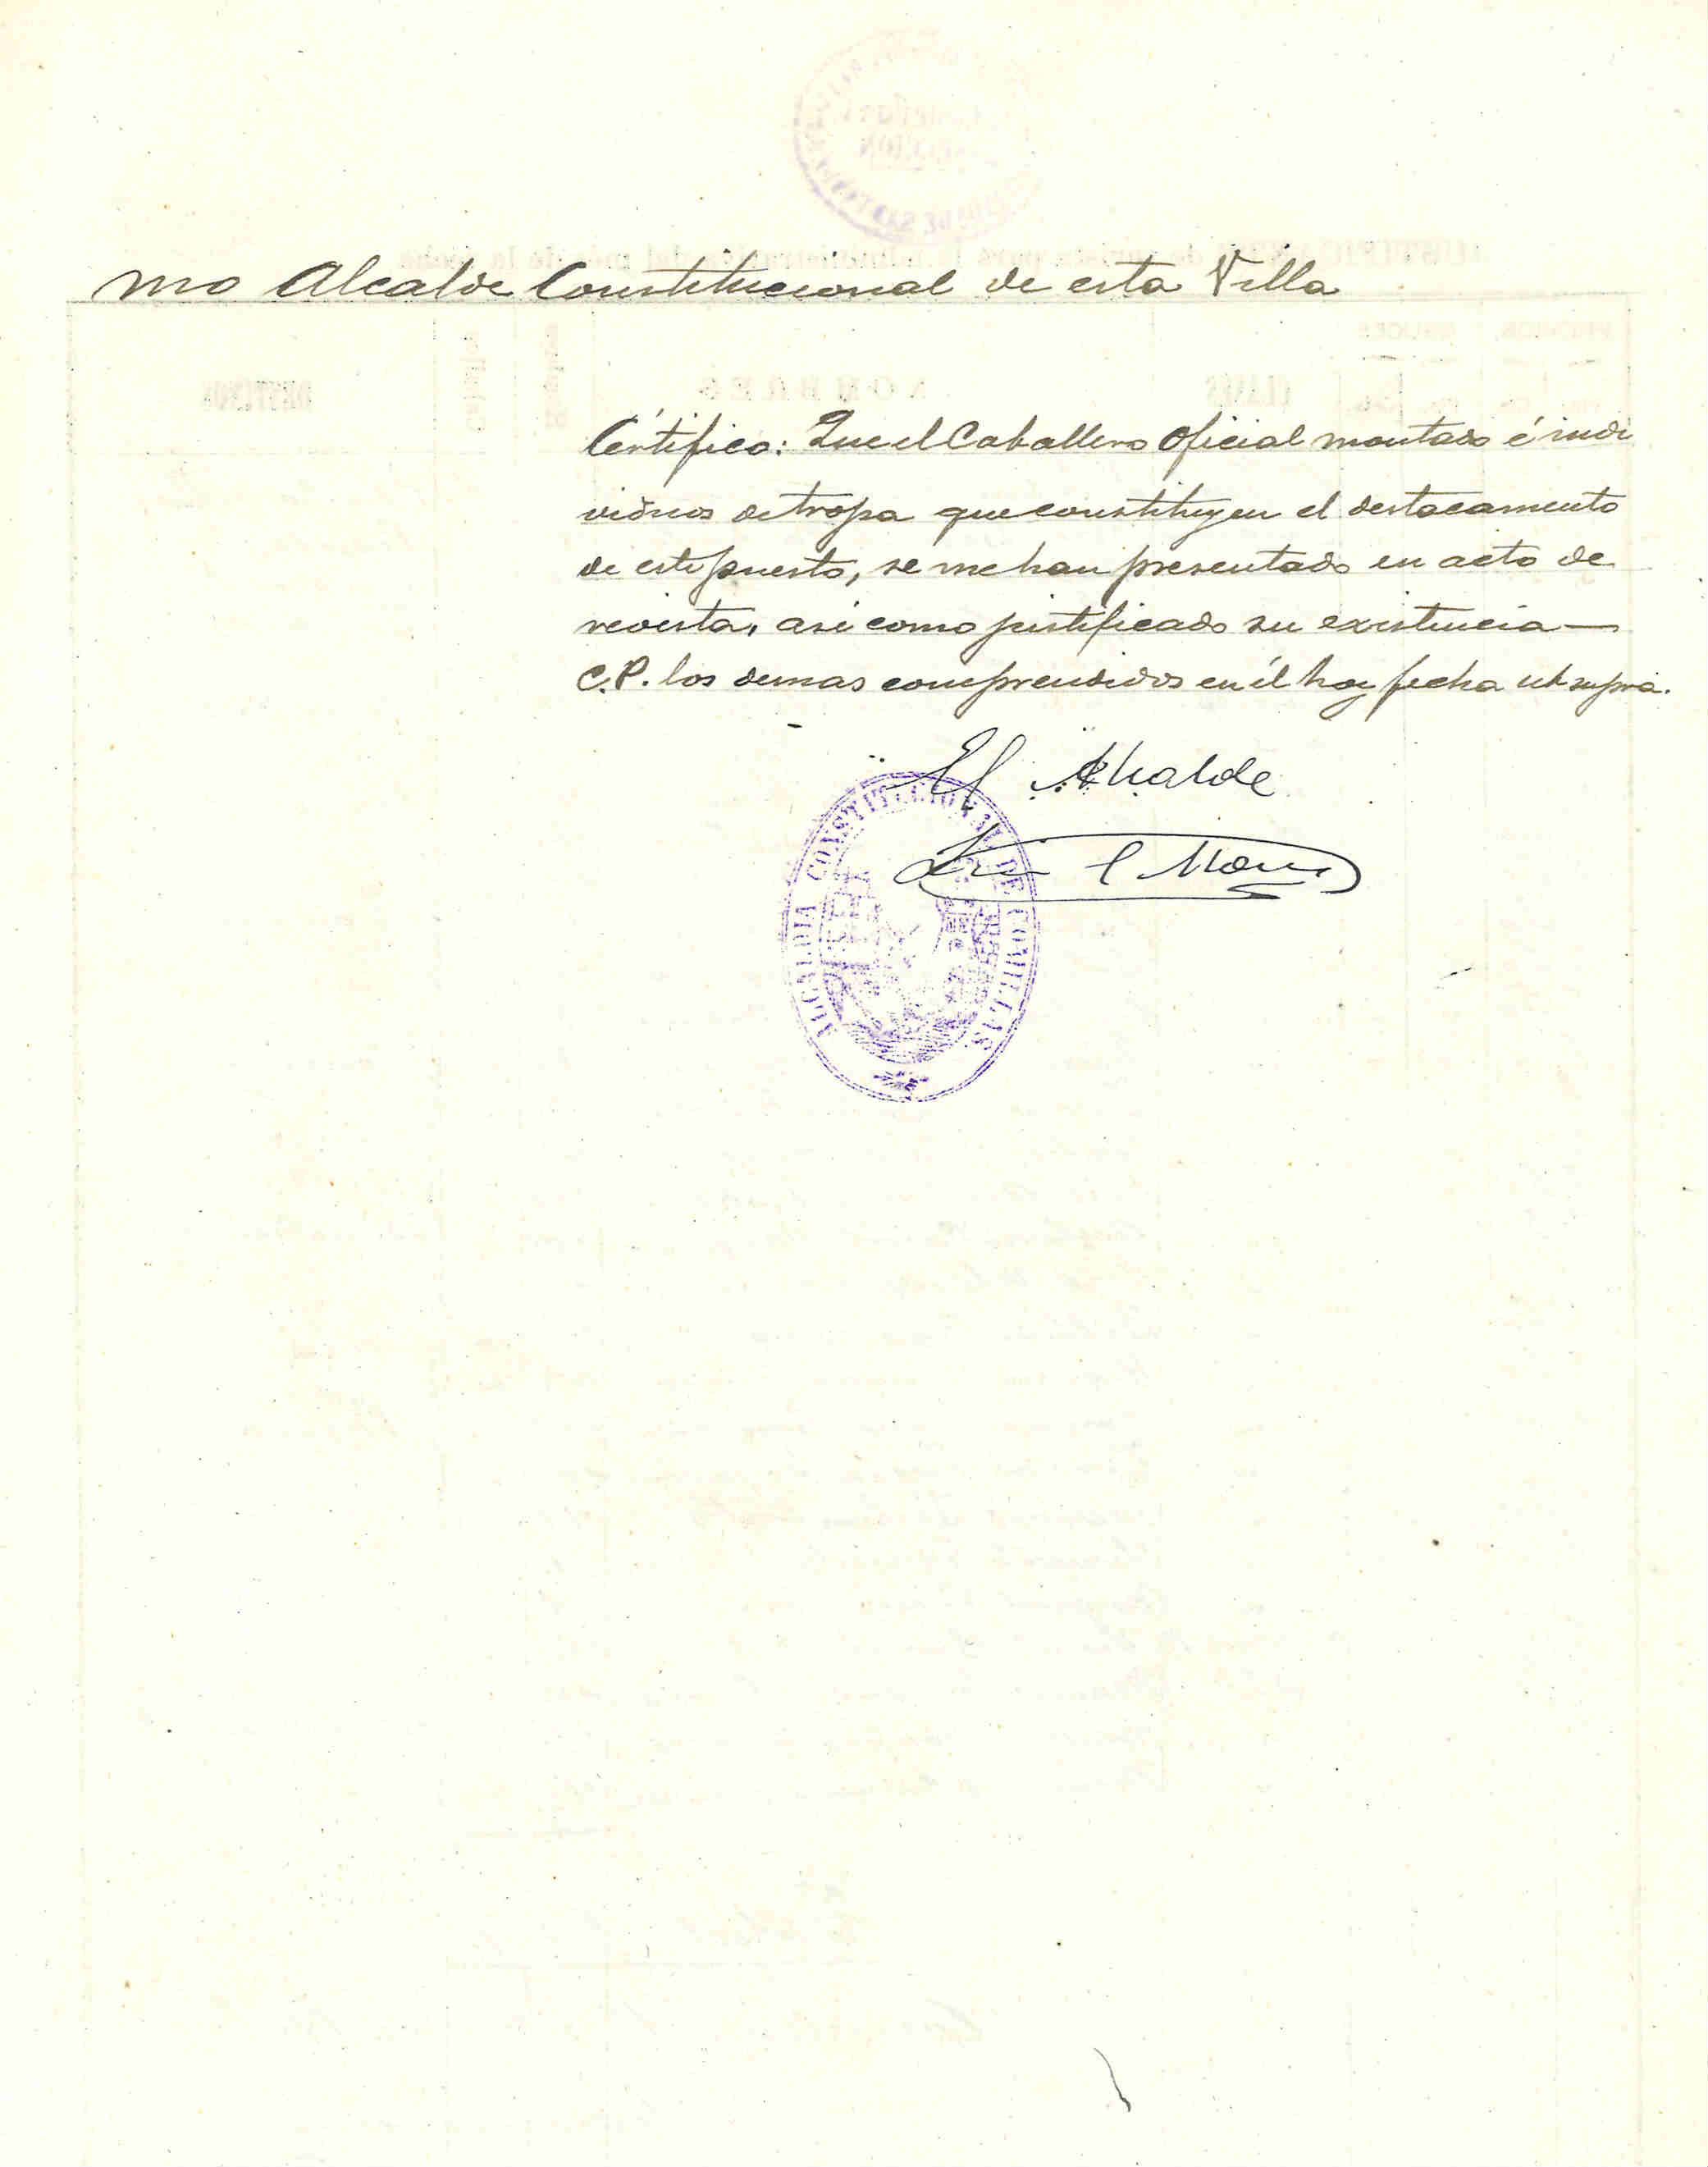 mo Alcalde Constitucional de esta Villa
Certifico: Que el Caballero Oficial montado é indi
viduos de tropa que constituyen el destacamento
de este puesto, se me han presentado en acto de
revista, asi como justificado su existencia —
C.P. los demas comprendidos en él hoy fecha ut supra.
El Alcalde
ALCALDIA CONSTITUCIONAL DE COMILLAS